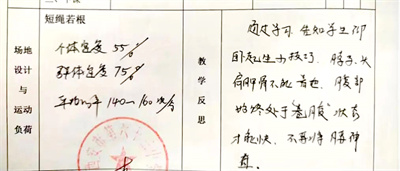 短绳若根
场地
设计
与
运动
负荷
个体密度 55%
群体密度 75%
平均心率 140—160次/分
教
学
反
思
通过学习，告知学生仰
卧起坐
技巧，脖子、
肩胛骨不能着地，腹部
始终处于“卷腹”状态
才能快，不要将腰伸
直。